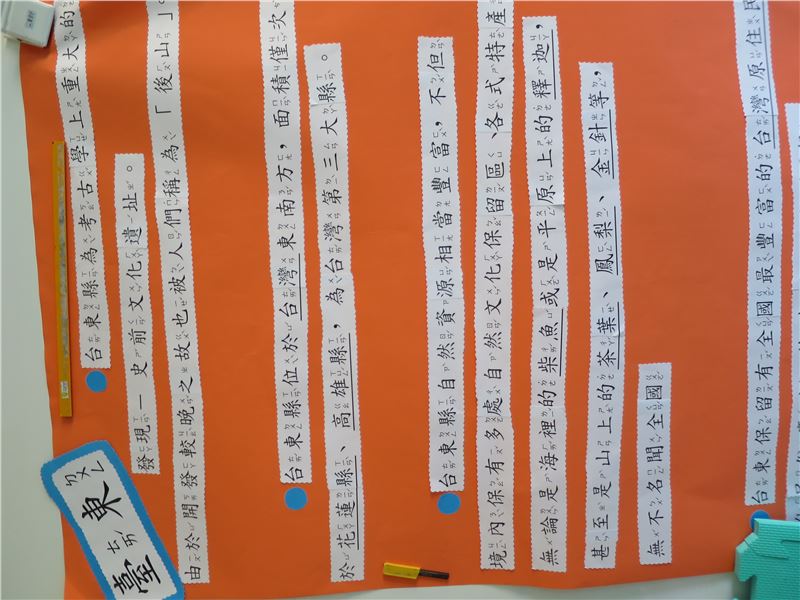 臺東
台東縣為考古學上重大的
發現—史前文化遺址。
由於開發較晚之故也被人們稱為「後山」。
台東縣位於台灣東南方，面積僅次
於花蓮縣、高雄縣，為台灣第三大縣。
台東縣自然資源相當豐富，不但
境內保有多處自然文化保留區、各式特產
無論是海裡的柴魚或是平原上的釋迦，
甚至是山上的茶葉、鳳梨、金針等，
無不名聞全國
台東保留有全國最豐富的台灣原住民